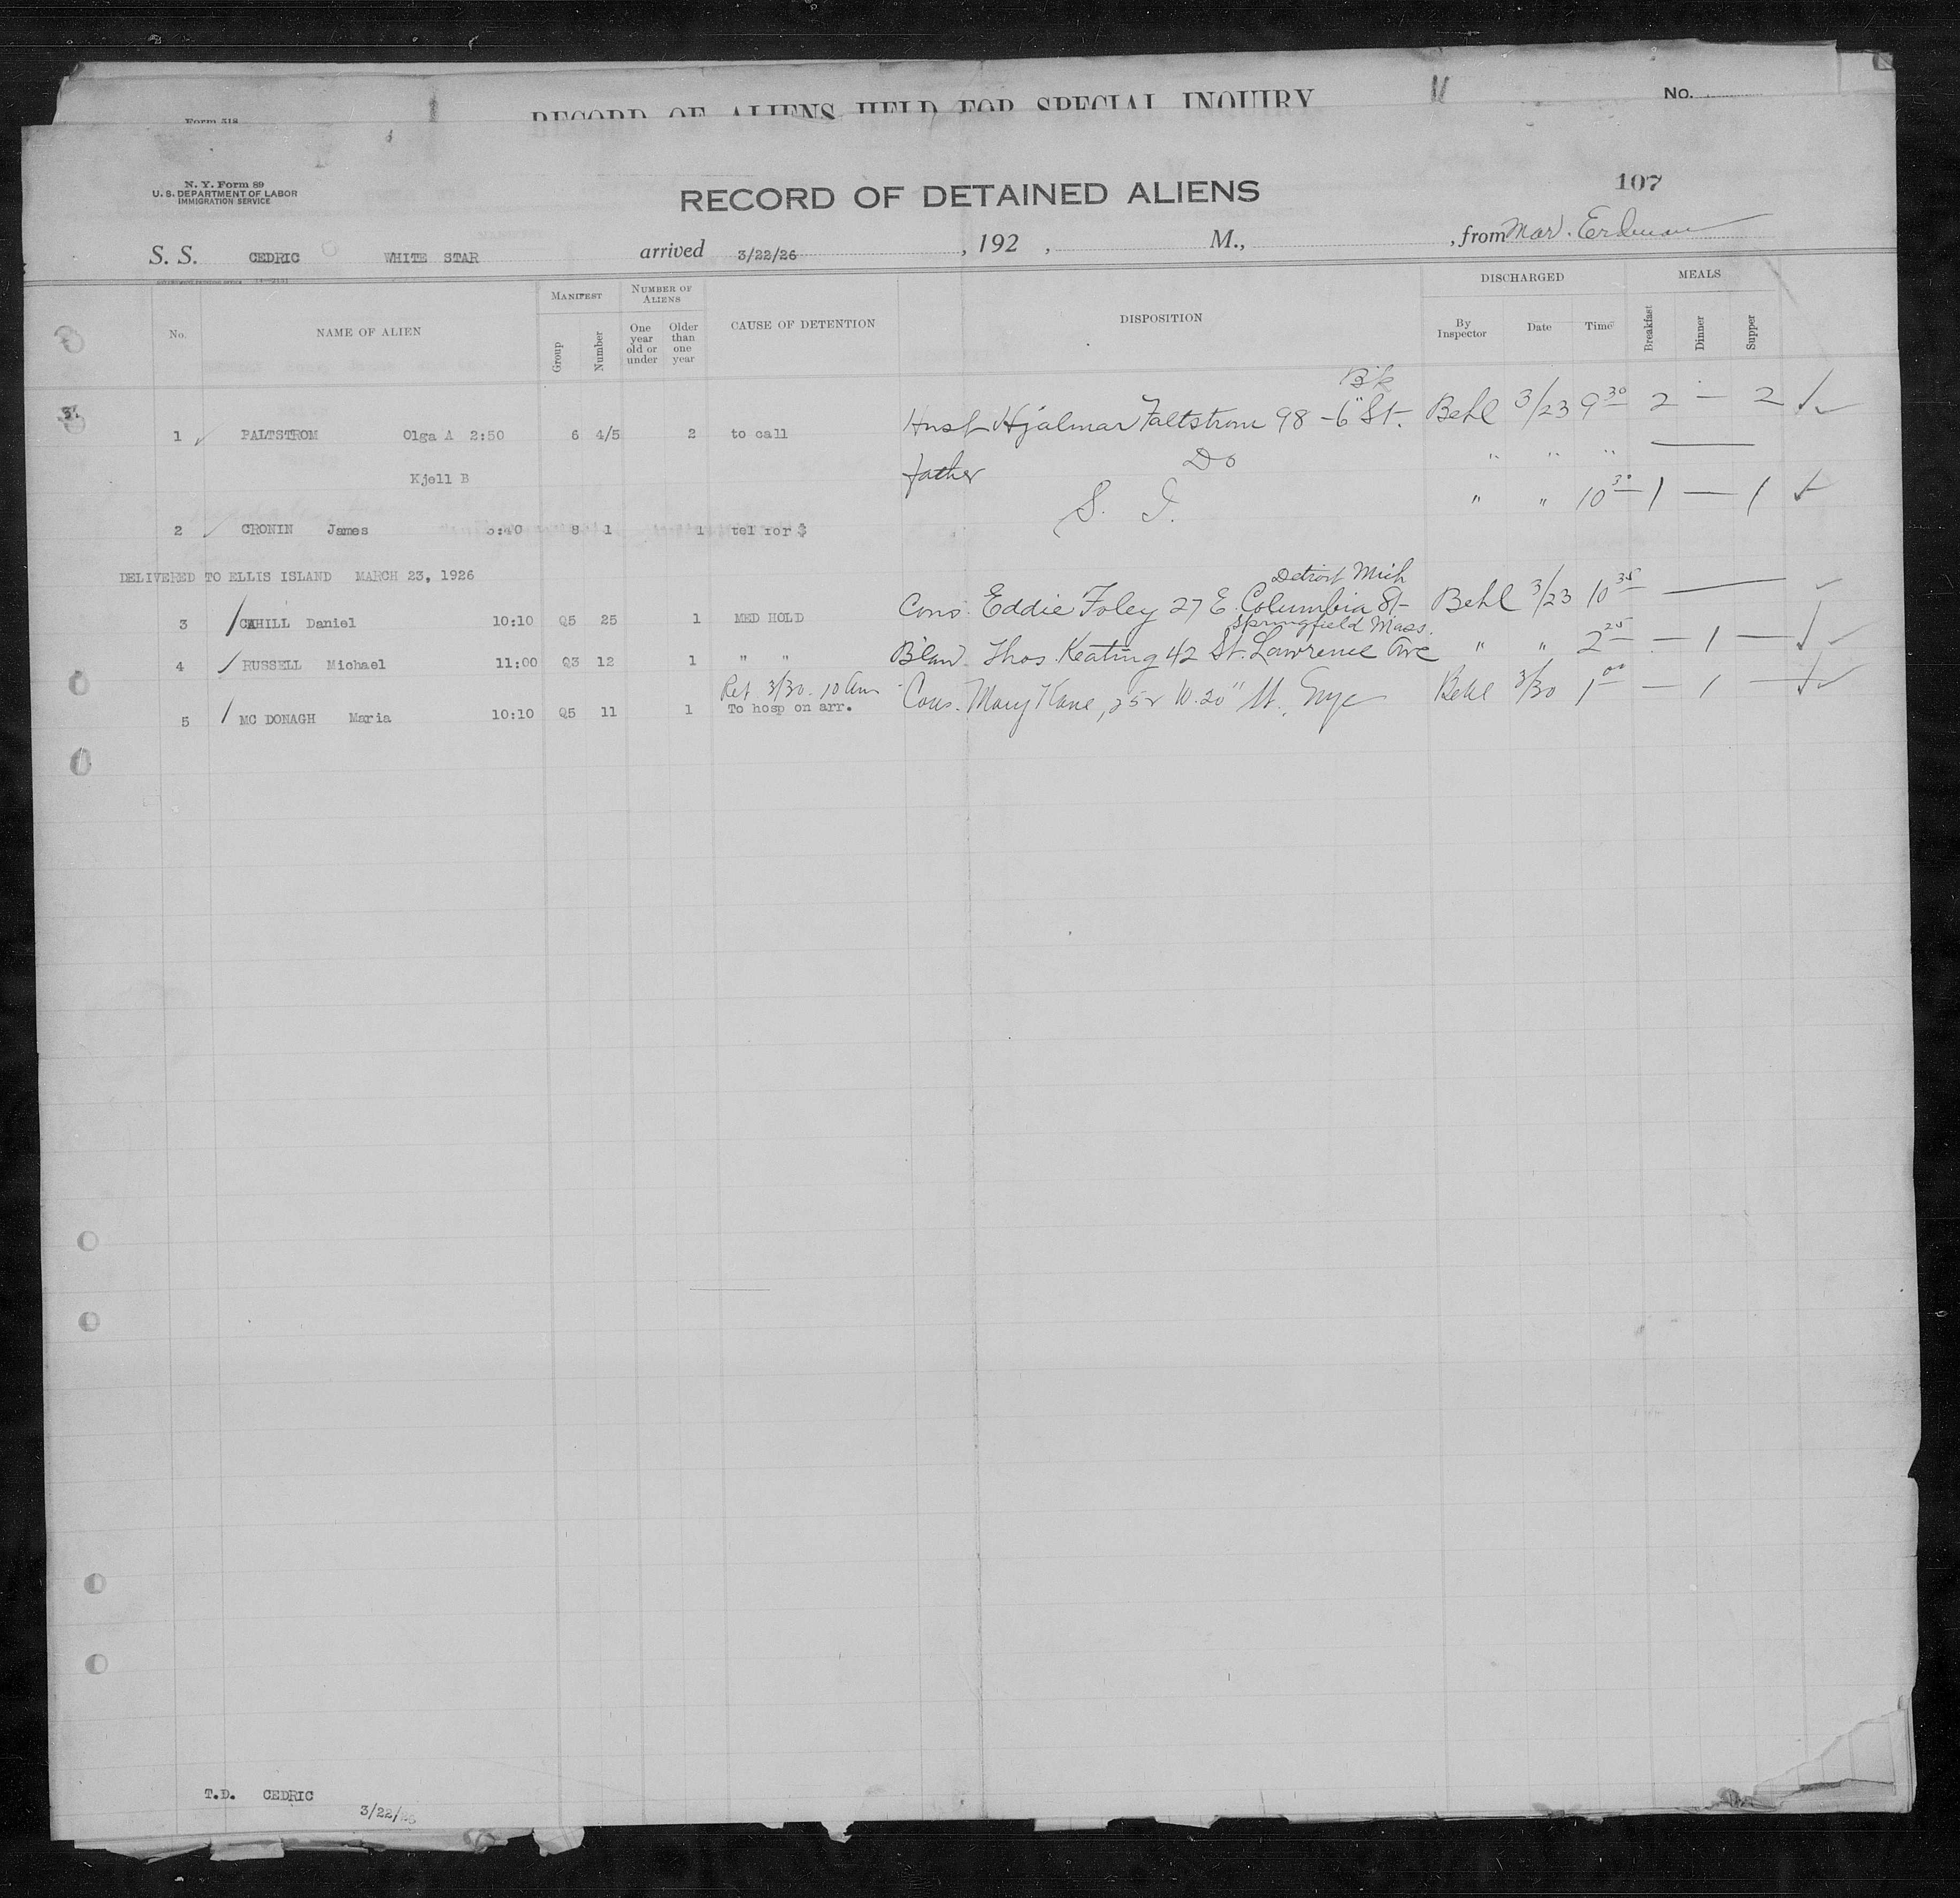 RECORD OF ALIENS HELD FOR SPECIAL INQUIRY
No.
Form 518
N. Y. Form 89
U. S. DEPARTMENT OF LABOR
IMMIGRATION SERVICE
RECORD OF DETAINED ALIENS
107
S. S. CEDRIC WHITE STAR arrived 3/22/26 , 192 , M., , from Mar. Erdman
No. NAME OF ALIEN MANIFEST Group Number NUMBER OF ALIENS One year old or under Older than one year CAUSE OF DETENTION DISPOSITION DISCHARGED By Inspector Date Time MEALS Breakfast Dinner Supper
Bk
1 PALTSTROM Olga A 2:50 6 4/5 2 to call Husb Hjalmar Faltstrom 98 - 6" St. Behl 3/23 9 30 2 — 2
Kjell B father Do " " "
2 CRONIN James 3:40 8 1 1 tel for $ S. I. " " 10 30 1 — 1
DELIVERED TO ELLIS ISLAND MARCH 23, 1926
Detroit Mich
3 CAHILL Daniel 10:10 Q5 25 1 MED HOLD Cons. Eddie Foley 27 E. Columbia St Behl 3/23 10 35 —
Springfield Mass.
4 RUSSELL Michael 11:00 Q3 12 1 " " B'law. Thos. Keating 42 St. Lawrence Ave " " 2 25 — 1 —
Ret 3/30 - 10 am
5 MC DONAGH Maria 10:10 Q5 11 1 To hosp on arr. Cous. Mary Kane, 252 W. 20" St., Nyc Behl 3/30 1 00 — 1 —
T.D. CEDRIC
3/22/26